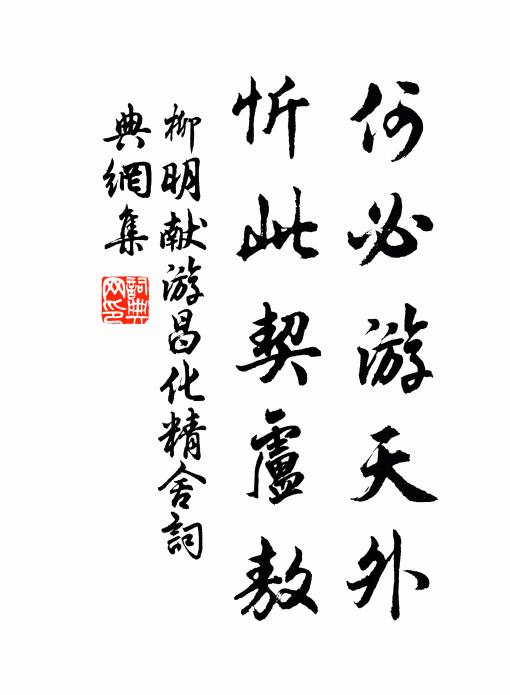 何必游天外
忻此契盧敖
柳明献游昌化精舍詞
典網集
詞典
网印